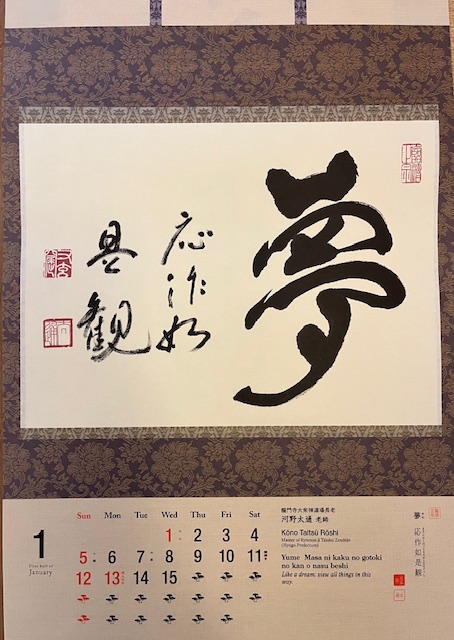 夢
応作如
是観
1
First half of
January
Sun Mon Tue Wed Thu Fri Sat
1 2 3 4
5 6 7 8 9 10 11
12 13 14 15
龍門寺大衆禅道場長老
河野太通 老師
Kōno Taitsū Rōshi
Master of Ryūmon-ji Taishū Zendōjō
(Hyōgo Prefecture)
Yume Masa ni kaku no gotoki
no kan o nasu beshi
Like a dream: view all things in this
way.
夢 応作如是観